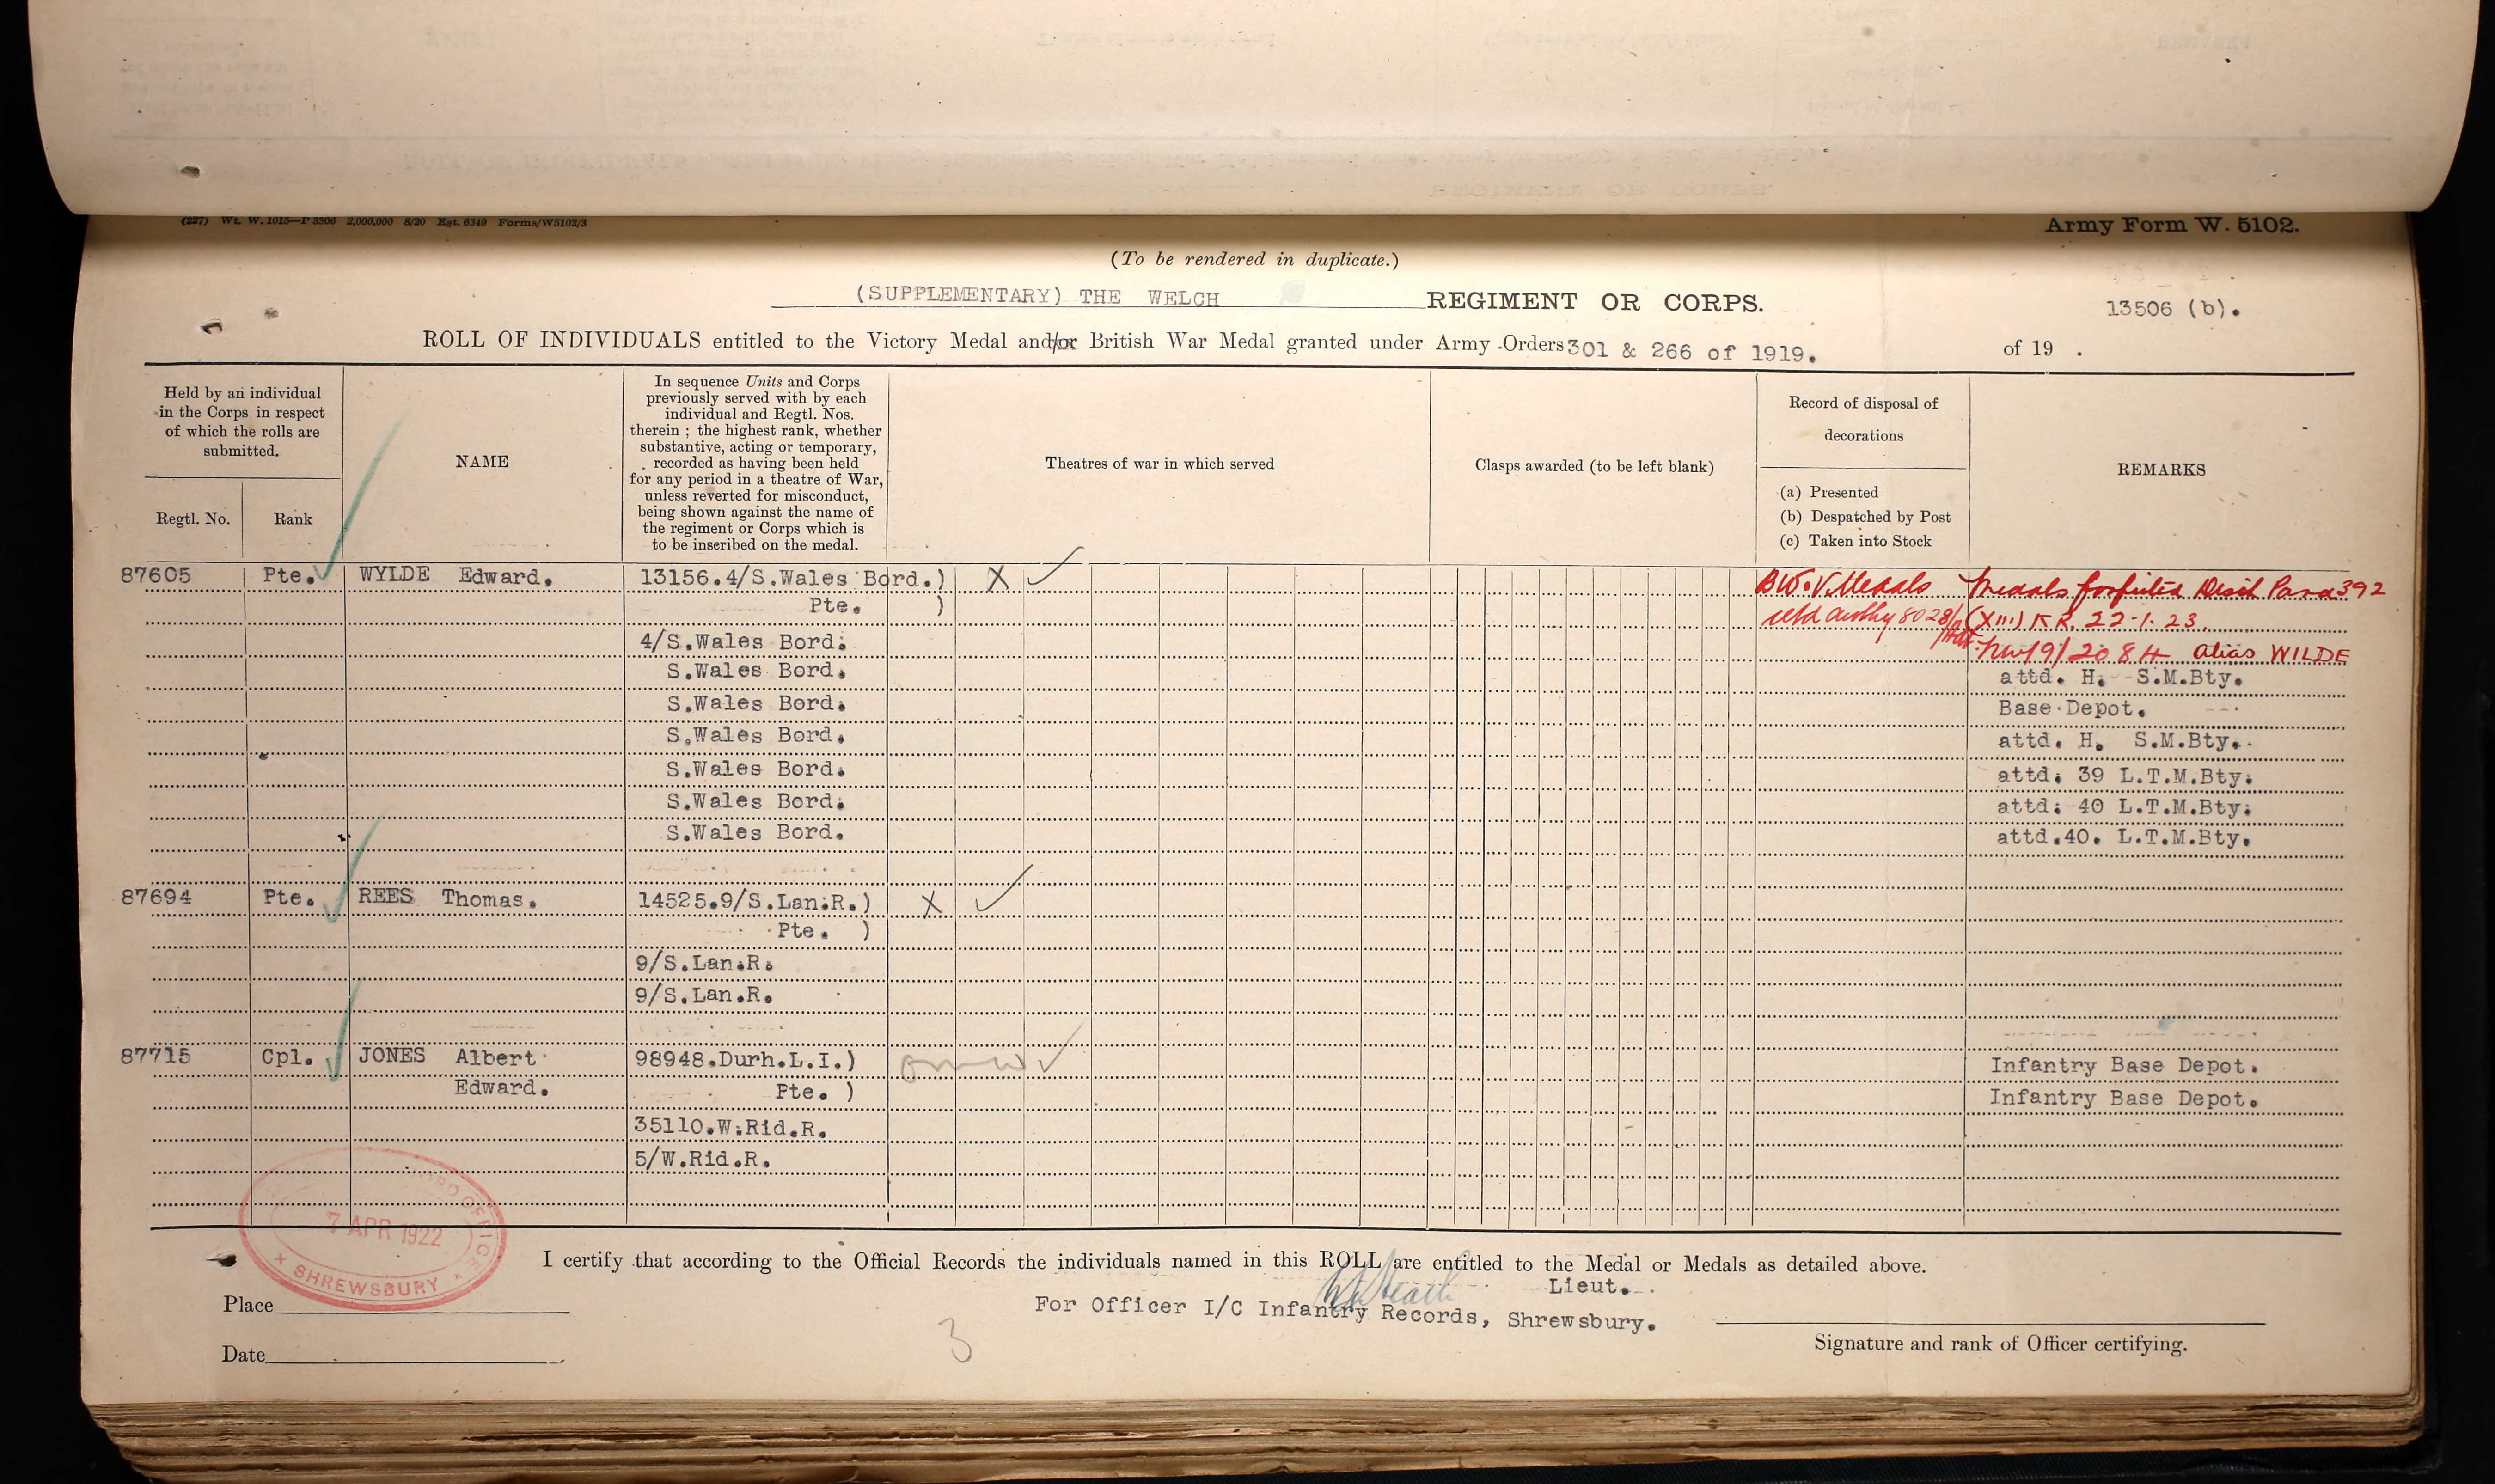 (227) Wt. W. 1015—P 3306 2,000,000 8/20 Est. 6349 Forms/W5102/3
Army Form W. 5102.
(To be rendered in duplicate.)
(SUPPLEMENTARY) THE WELCH REGIMENT OR CORPS.
13506 (b).
ROLL OF INDIVIDUALS entitled to the Victory Medal and/or British War Medal granted under Army Orders 301 & 266 of 1919. of 19 .
Held by an individual
in the Corps in respect
of which the rolls are
submitted.
Regtl. No.
Rank
NAME
In sequence Units and Corps
previously served with by each
individual and Regtl. Nos.
therein ; the highest rank, whether
substantive, acting or temporary,
recorded as having been held
for any period in a theatre of War,
unless reverted for misconduct,
being shown against the name of
the regiment or Corps which is
to be inseribed on the medal.
Theatres of war in which served
Clasps awarded (to be left blank)
Record of disposal of
decorations
(a) Presented
(b) Despatched by Post
(c) Taken into Stock
REMARKS
87605 Pte. WYLDE Edward. 13156.4/S.Wales Bord.) X BW. V. Medals Medals forfeited Para 392
Pte. ) (XIII) KR. 22-1-23.
4/S.Wales Bord. 9/2084 alias WILDE
S.Wales Bord. attd. H. S.M.Bty.
S.Wales Bord. Base Depot.
S.Wales Bord. attd. H. S.M.Bty.
S.Wales Bord. attd. 39 L.T.M.Bty.
S.Wales Bord. attd. 40 L.T.M.Bty.
S.Wales Bord. attd.40. L.T.M.Bty.
87694 Pte. REES Thomas. 14525.9/S.Lan.R.) X
Pte. )
9/S.Lan.R.
9/S.Lan.R.
87715 Cpl. JONES Albert 98948.Durh.L.I.) Infantry Base Depot.
Edward. Pte. ) Infantry Base Depot.
35110.W.Rid.R.
5/W.Rid.R.
7 APR 1922
SHREWSBURY
I certify that according to the Official Records the individuals named in this ROLL are entitled to the Medal or Medals as detailed above.
Lieut.
Place
For Officer I/C Infantry Records, Shrewsbury.
3
Signature and rank of Officer certifying.
Date